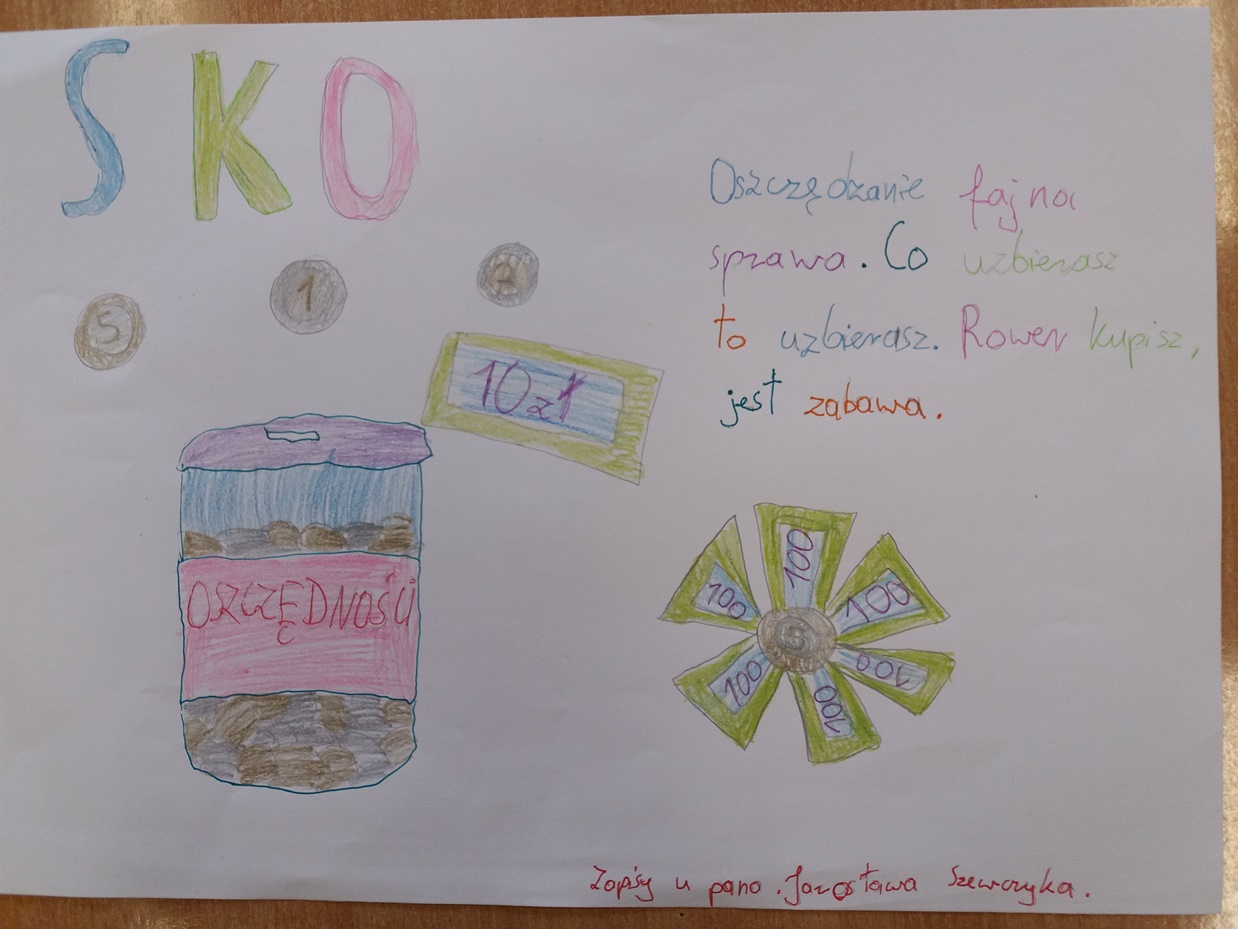 SKO
Oszczędzanie fajna
sprawa. Co uzbierasz
to uzbierasz. Rower kupisz,
jest zabawa.
5
1
2
10 zł
OSZCZĘDNOŚCI
100
100
100
100
100
100
5
Zapisy u pana Jarosława Szewczyka.